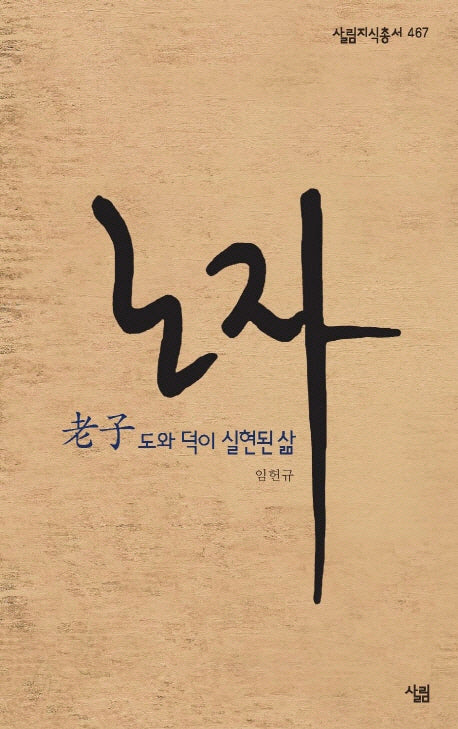 살림지식총서 467
노자
老子 도와 덕이 실현된 삶
임헌규
살림